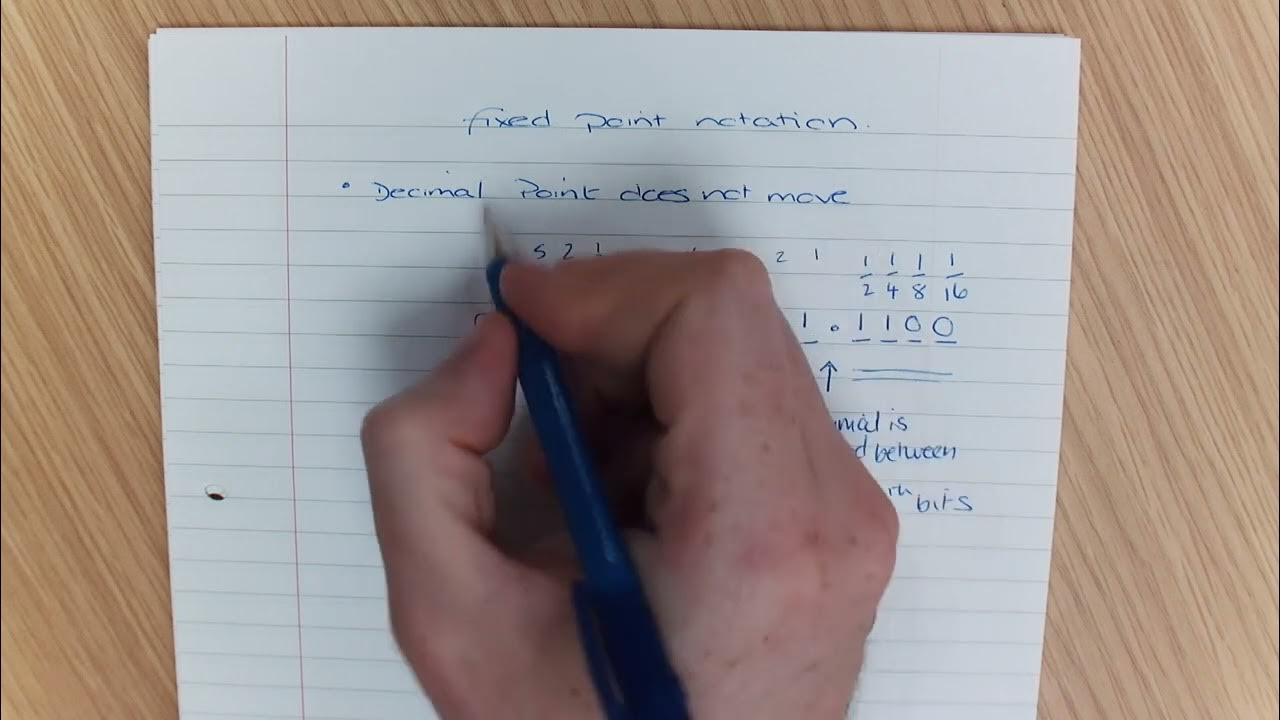 fixed point notation.
• Decimal Point does not move
5 2 1 2 1 1/2 1/4 1/8 1/16
1 . 1 1 0 0
↑
is
between
bits